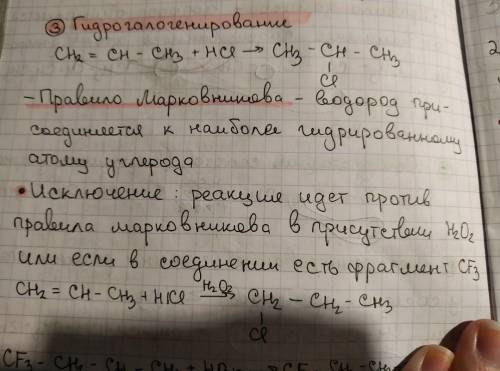 ③ Гидрогалогенирование
CH₂ = CH - CH₃ + HCl → CH₃ - CH - CH₃
Cl
- Правило Марковникова - водород при-
соединяется к наиболее гидрированному
атому углерода
• Исключение: реакция идет против
правила марковникова в присутствии H₂O₂
или если в соединении есть фрагмент CF₃
CH₂ = CH - CH₃ + HCl H₂O₂→ CH₂ - CH₂ - CH₃
Cl